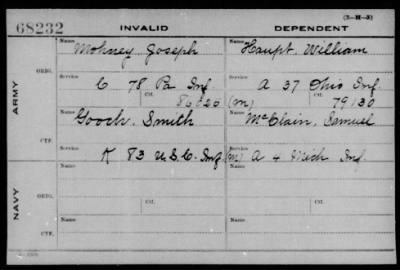 (3-M-3)
68232 INVALID DEPENDENT
Name Mohney, Joseph Name Haupt, William
ARMY
ORIG. Service C 78 Pa Inf Service A 37 Ohio Inf
Ctf. Ctf. (m) 79130
Name Gooch, Smith Name McClain, Samuel
CTF. Service K 83 U.S.C. Inf Service (m) A 4 Mich Inf
NAVY
Name Name
ORIG. Service Ctf. Service Ctf.
Name Name
CTF. Service Service